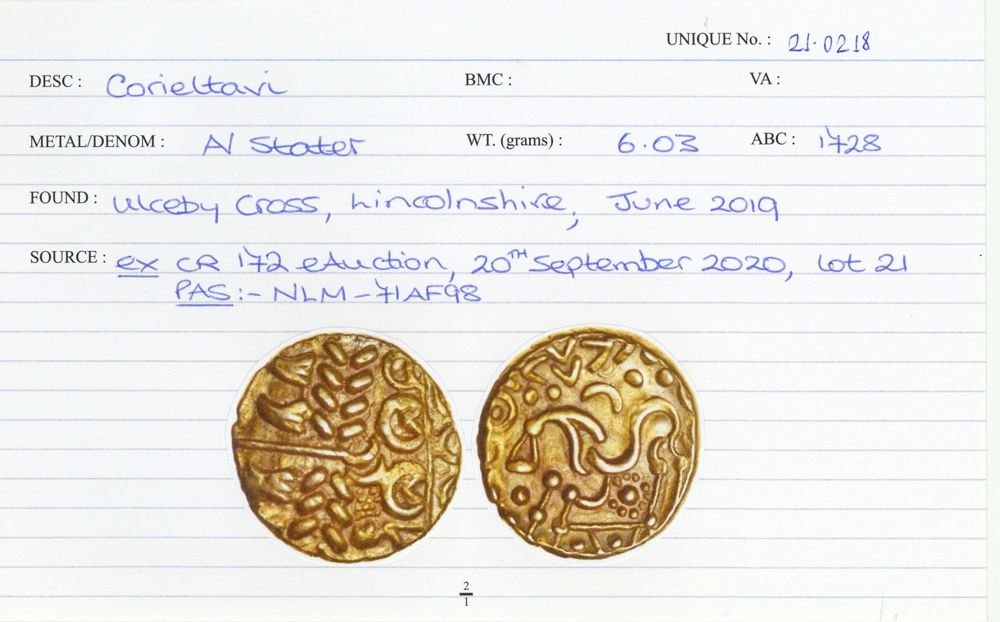 UNIQUE No. : 21·0218
DESC : Corieltavi BMC : VA :
METAL/DENOM : AV Stater WT. (grams) : 6.03 ABC : 1728
FOUND : Ulceby Cross, Lincolnshire, June 2019
SOURCE : ex CR 172 eAuction, 20TH September 2020, Lot 21
PAS:- NLM-71AF98
2
1